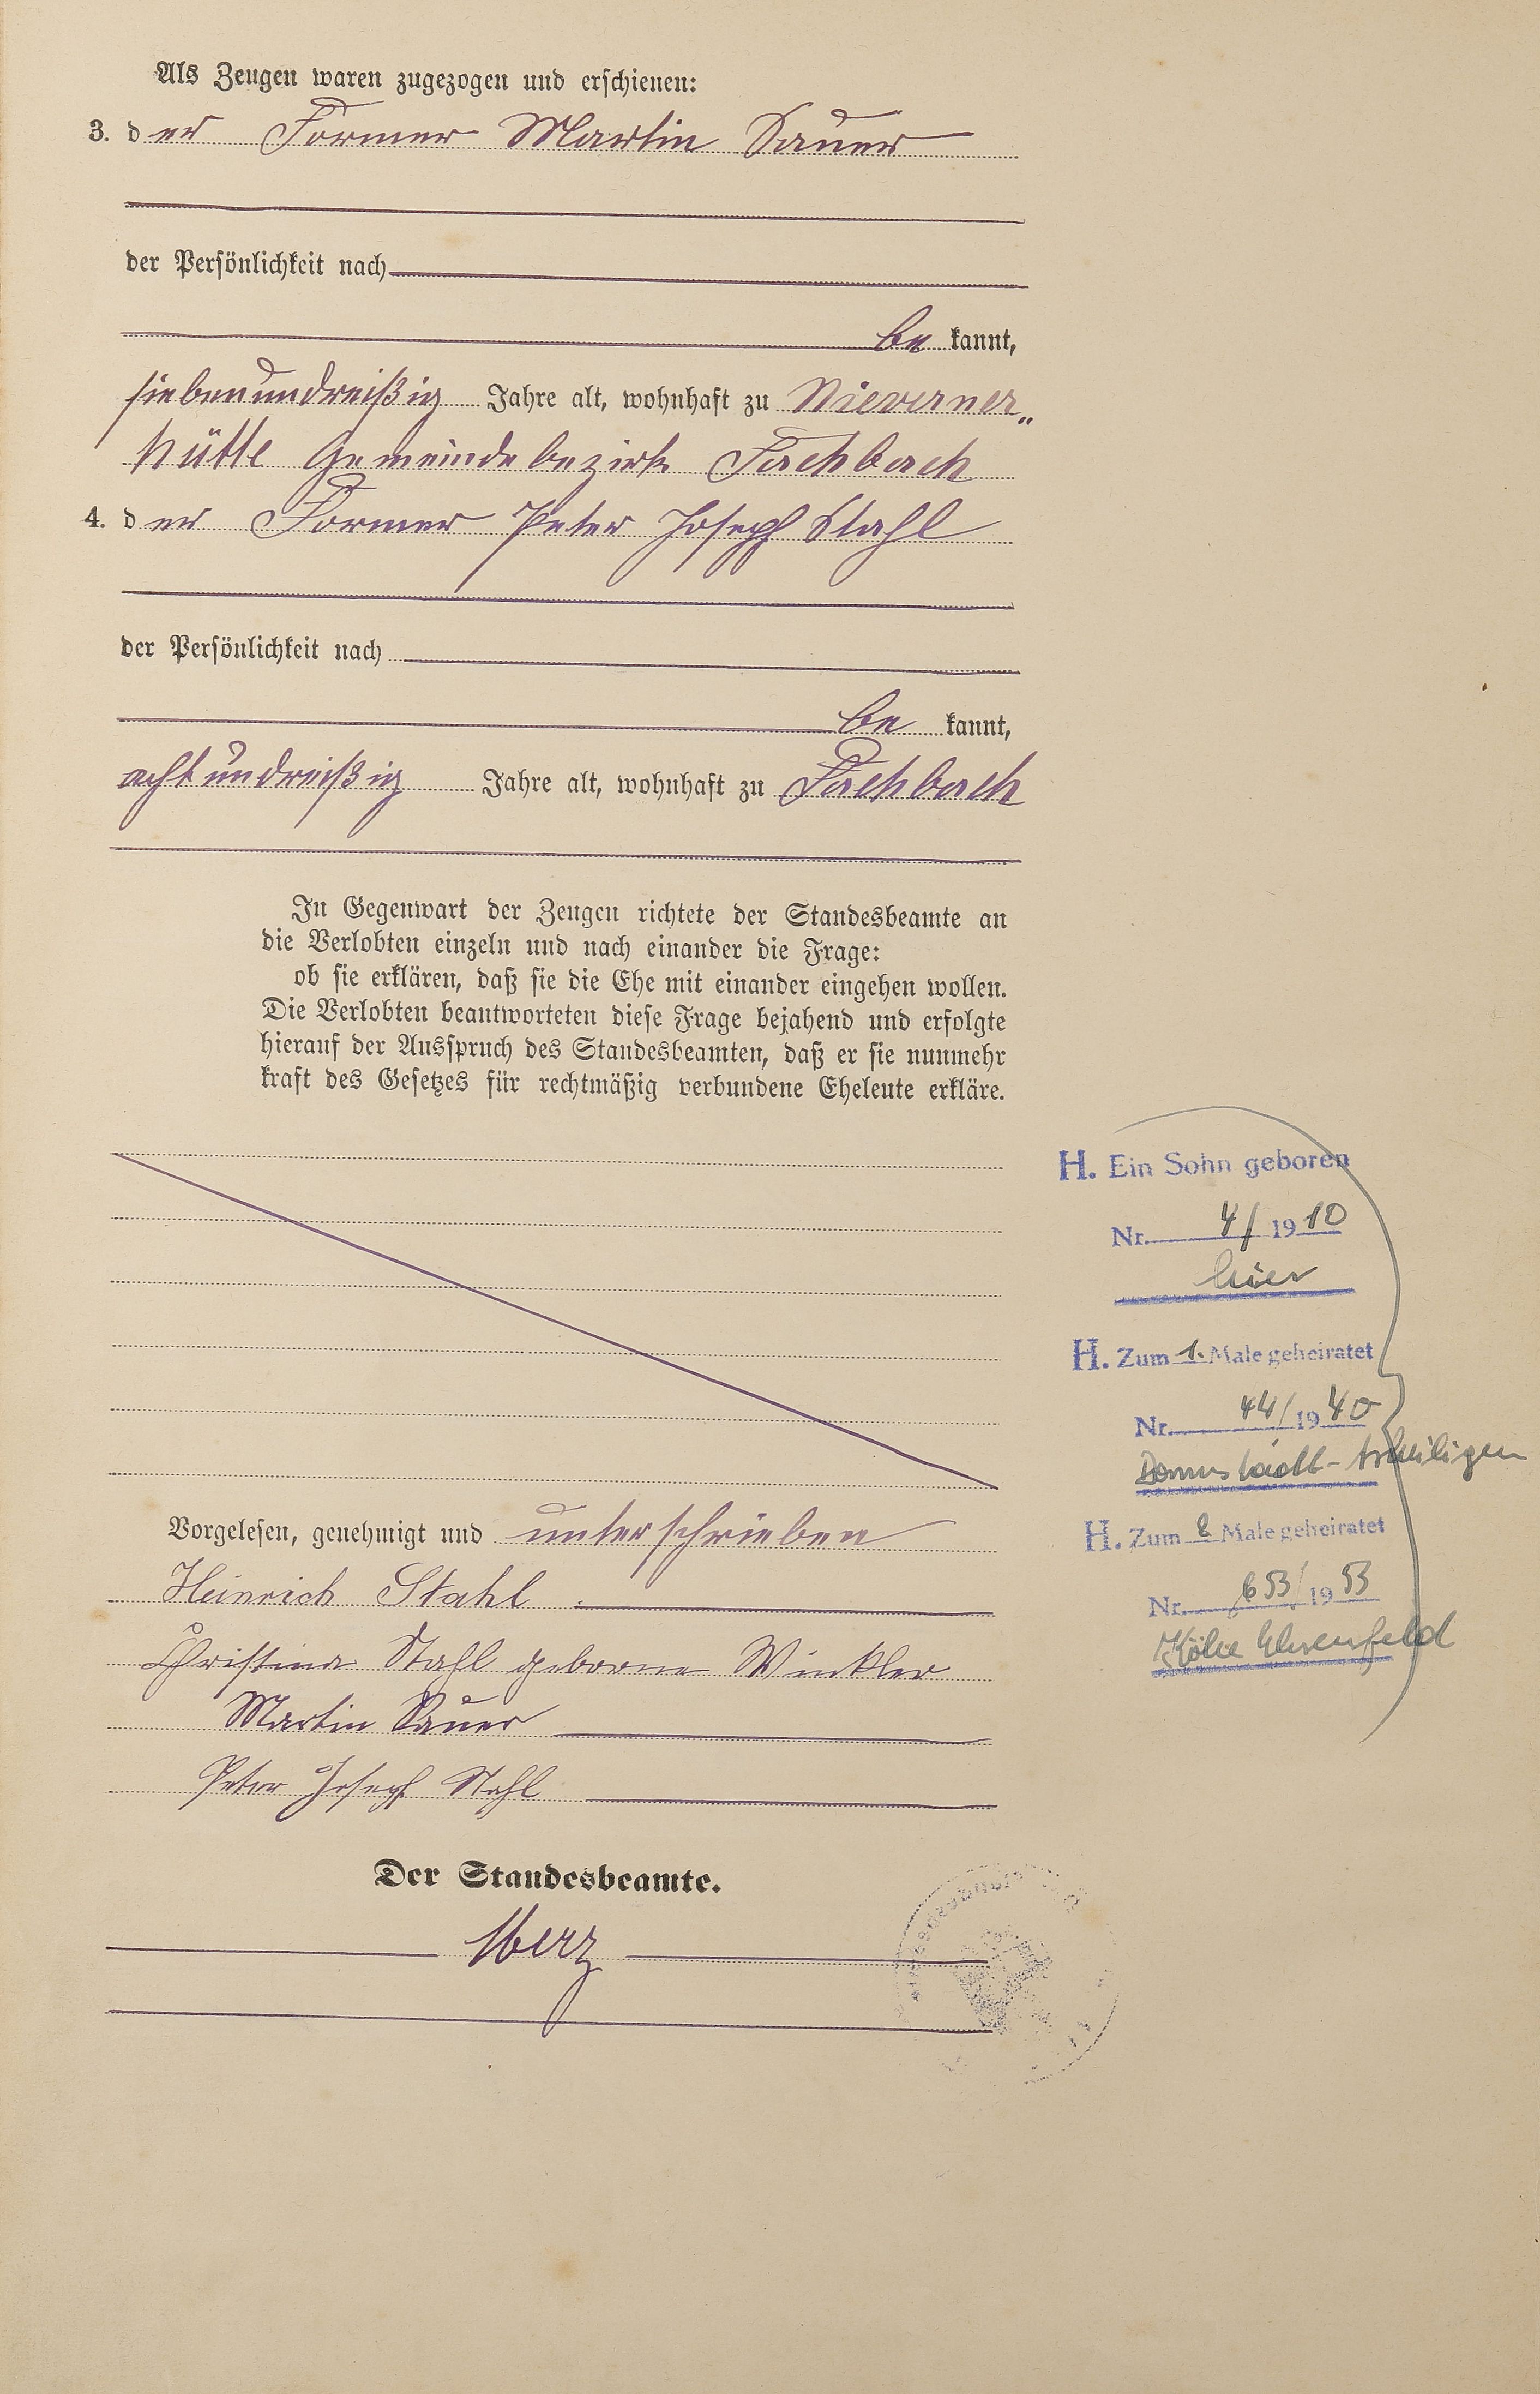 Als Zeugen waren zugezogen und erschienen:
3. der Former Martin Sauer
der Persönlichkeit nach
be kannt,
siebenunddreißig Jahre alt, wohnhaft zu Nieverner„
hütte Gemeindebezirk Fachbach
4. der Former Peter Joseph Stahl
der Persönlichkeit nach
be kannt,
achtunddreißig Jahre alt, wohnhaft zu Fachbach
In Gegenwart der Zeugen richtete der Standesbeamte an
die Verlobten einzeln und nach einander die Frage:
ob sie erklären, daß sie die Ehe mit einander eingehen wollen.
Die Verlobten beantworteten diese Frage bejahend und erfolgte
hierauf der Ausspruch des Standesbeamten, daß er sie nunmehr
kraft des Gesetzes für rechtmäßig verbundene Eheleute erkläre.
Vorgelesen, genehmigt und unterschrieben
Heinrich Stahl
Christina Stahl geborne Winkler
Martin Sauer
Peter Joseph Stahl
Der Standesbeamte.
Merz
H. Ein Sohn geboren
Nr. 4/1910
hier
H. Zum 1. Male geheiratet
Nr. 44/1940
Darmstadt-Arheiligen
H. Zum 2 Male geheiratet
Nr. 653/1953
Köln Ehrenfeld